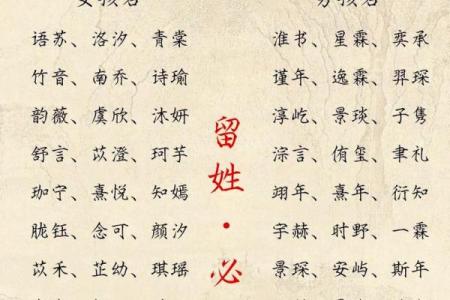 语苏、洛汐、青棠
竹音、南乔、诗瑜
韵薇、虞欣、沐妍
舒言、苡澄、珂芋
珈宁、熹悦、知嫣
胧钰、念可、颜汐
苡禾、芷幼、琪瑶
留姓·必
淮书、星霖、奕承
谨年、逸霖、羿琛
淳屹、景琰、子隽
淙言、侑玺、聿礼
翊年、熹年、衍知
宇赫、时野、一霖
景琛、安屿、斯年